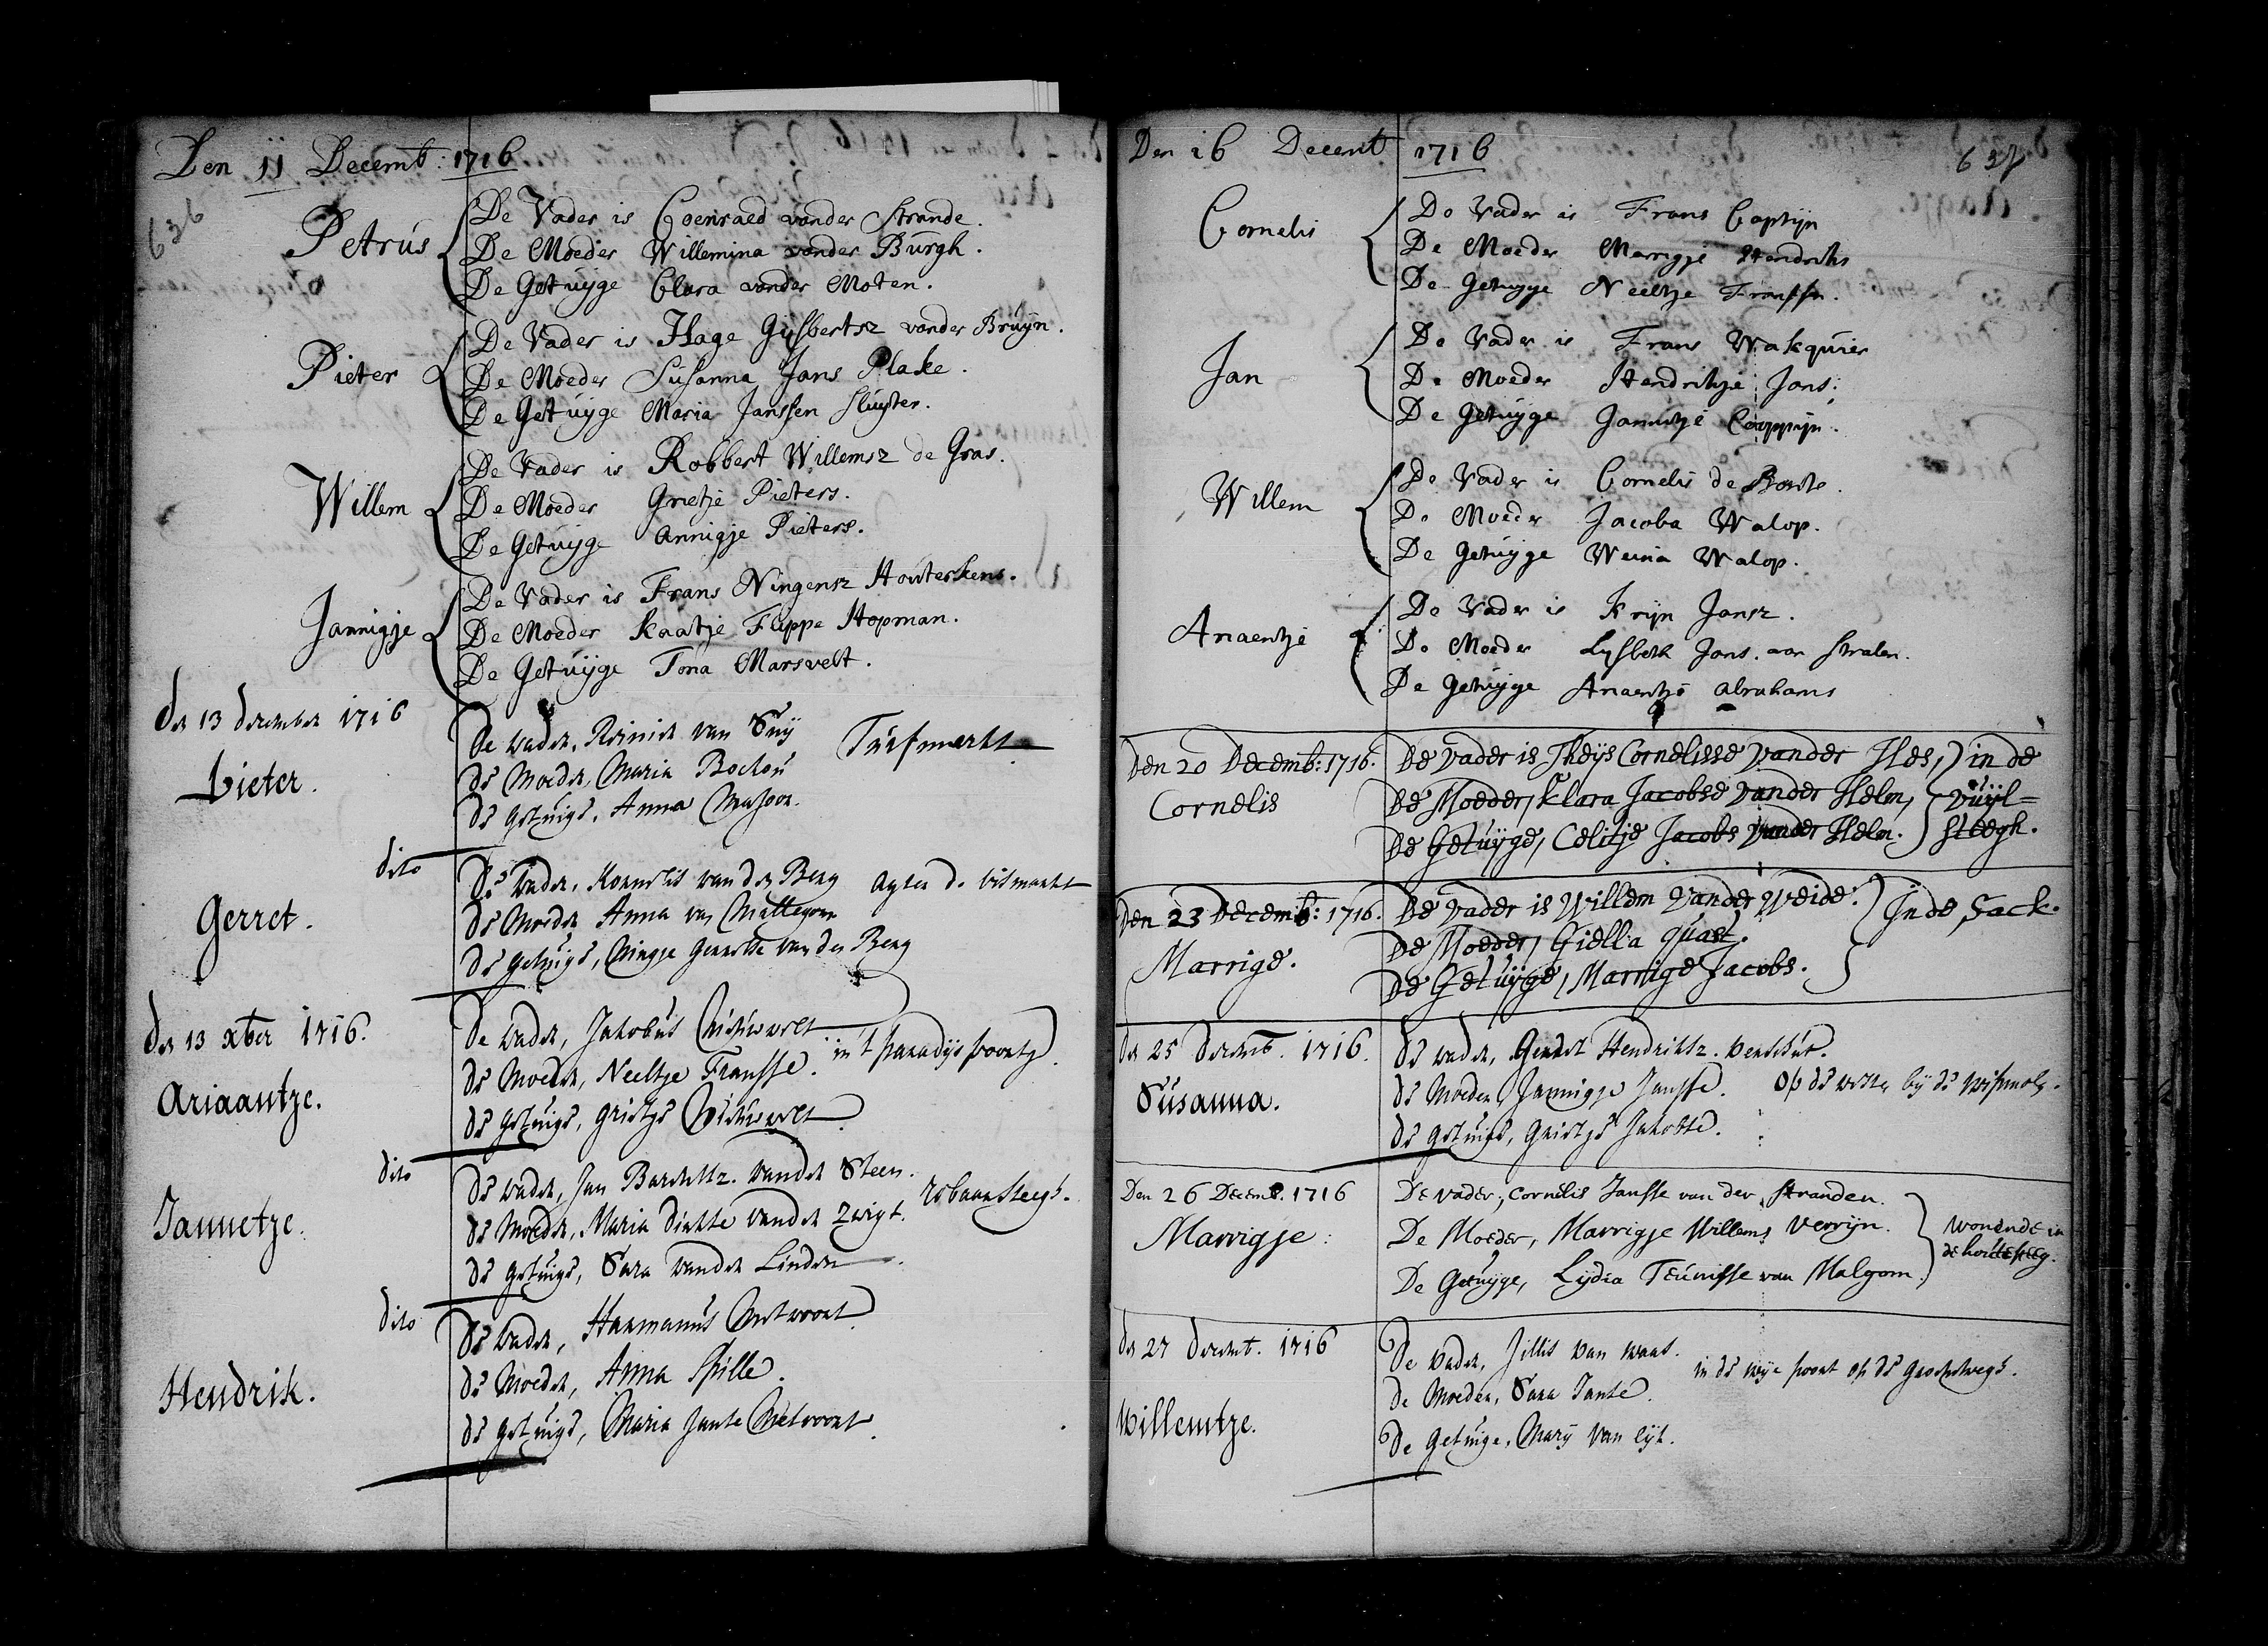 Den 11 Decemb: 1716
636
Petrus
De Vader is Coenraed vander Strande.
De Moeder Willemina vander Burgh.
De Getuyge Clara vander Moten.
Pieter
De Vader is Hage Gysbertsz vander Bruyn.
De Moeder Susanna Jans Plake.
De Getuyge Maria Janssen Sluyter.
Willem
De Vader is Robbert Willemsz de Gras.
De Moeder Grietje Pieters.
De Getuyge Annigje Pieters.
Jannigje
De Vader is Frans Ningensz Houterkens.
De Moeder Kaatje Flippe Hopman.
De Getuyge Tona Marsvelt.
den 13 december 1716
Pieter.
De vader, Reinier van Suy Turfmarkt
de Moeder, Maria
de getuige, Anna
dito
Gerret.
De vader, Kornelis van der Berg agter de vismarkt
de Moeder Anna van Mattegom
de getuige, Gerritse van der Berg
den 13 xber 1716.
Ariaantze.
De vader, Jakobus
de Moeder, Neeltje Fransse. in 't paradijs poortje.
de getuige, grietje
dito
Jannetze.
de vader, Jan Bareltsz. vander Steen.
de Moeder, Maria Dirkse vander Zwigt. rosbaansteegh.
de getuige, Sara vander Linden
dito
Hendrik.
de vader, Harmanus Ontwoort
de Moeder, Anna Spille.
de getuige, Maria Janse
Den 16 Decemb 1716
637
Cornelis
De Vader is Frans Captijn
De Moeder Marrigje Hendriks
De Getuyge Neeltje Franssn.
Jan
De Vader is Frans Wakquier
De Moeder Hendrikje Jans.
De Getuyge Jannetje Cappijn.
Willem
De Vader is Cornelis de
De Moeder Jacoba Walop.
De Getuyge Weina Walop.
Anaentje
De Vader is Krijn Jansz.
De Moeder Lysbeth Jans. van Stralen.
De Getuyge Anaentje Abrahams
Den 20 Decemb: 1716.
Cornelis
De Vader is Theijs Cornelisse vander Hes, in de
De Moeder, Klara Jacobse vander Helm, vuijl=
De Getuijge, Celitje Jacobs vander Helm. steegh.
Den 23 Decemb: 1716.
Marrige.
De Vader is Willem vander Weide. Jnde Sack.
De Moeder, Giellia quast.
De Getuijge, Marrige Jacobs.
den 25 decemb. 1716.
Susanna.
de vader, Gerret Hendriksz.
de Moeder, Jannigje Jansse. op de veste bij de
de getuige, Grietje Jakobse.
Den 26 Decemb. 1716
Marrigje:
De vader, Cornelis Jansse van der Stranden.
De Moeder, Marrigje Willems Verrijn. Wonende in
De Getuijge, Lydia Teunisse van Malgom. de houtesteeg.
den 27 decemb. 1716
Willemtze.
De vader, Jillis van waas.
de Moeder, Sara Janse. in de wije poort op de
De Getuige, Mary van Eyk.